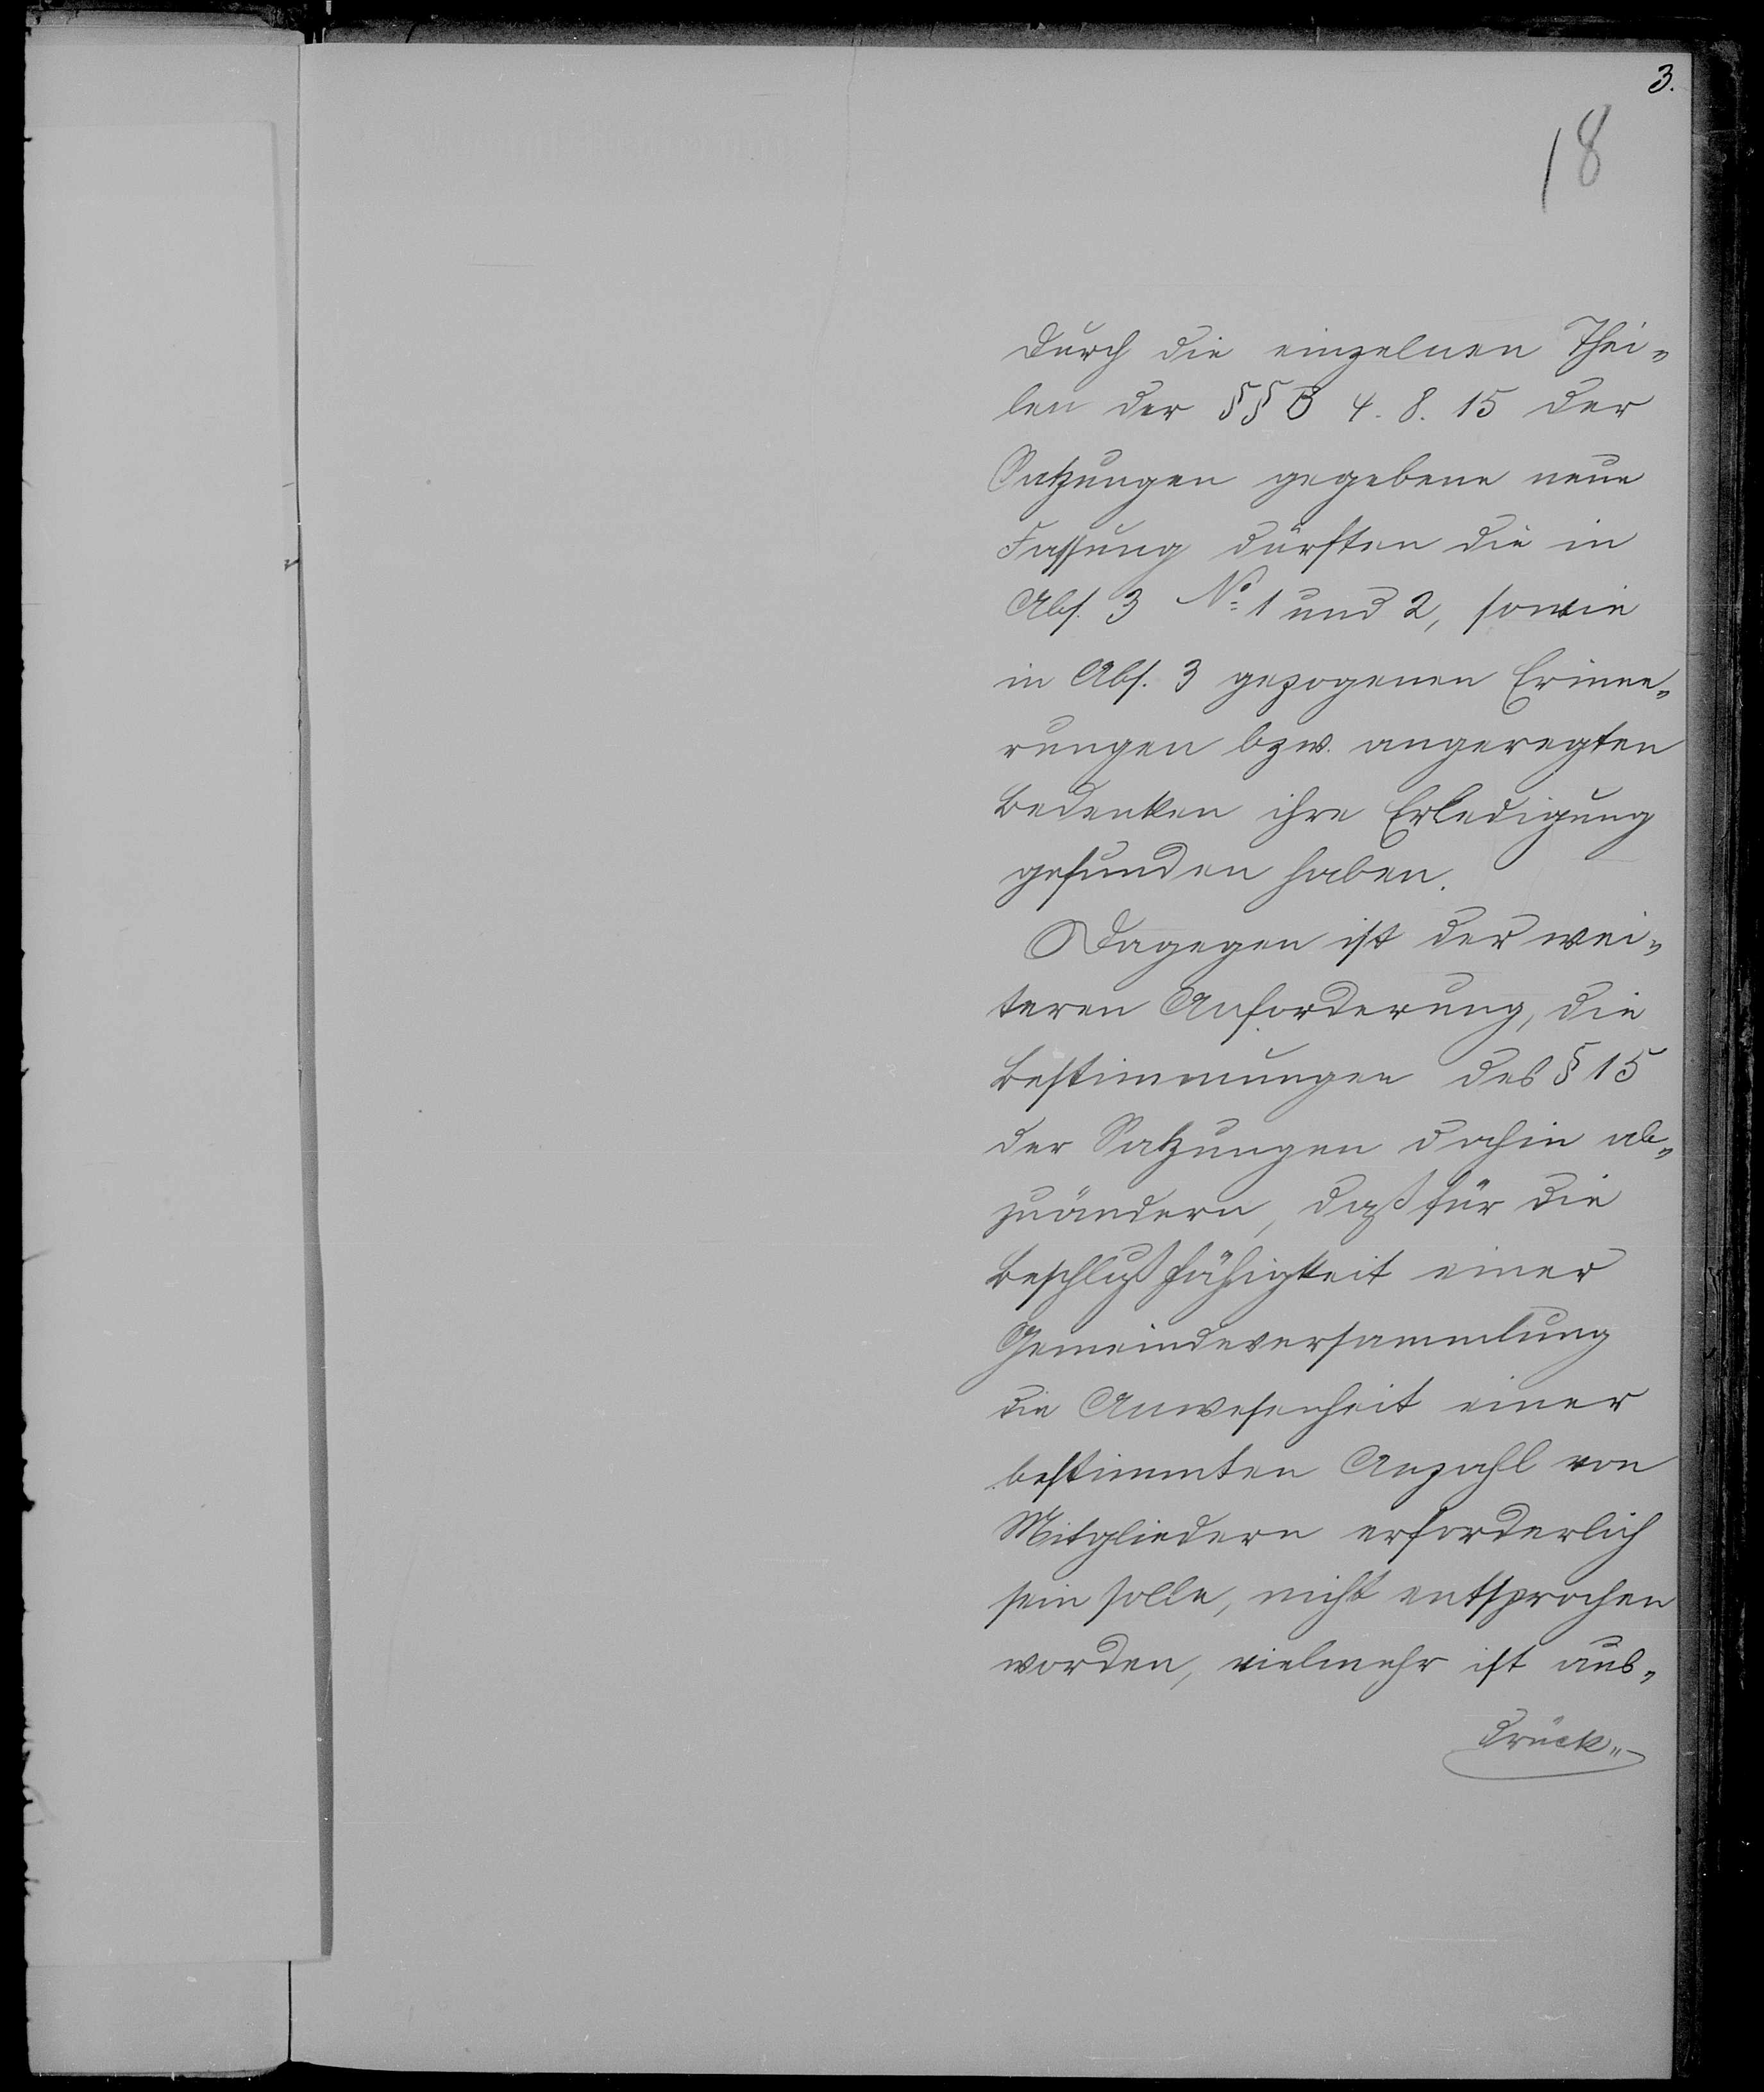 3.
18
durch die einzelnen Thei-
len der §§ 3 4. 8. 15 der
Satzungen gegebene neue
Fassung dürften die in
Abs. 3 No. 1 und 2, sowie
in Abs. 3 gezogenen Erinne-
rungen bzw. angeregten
Bedenken ihre Erledigung
gefunden haben.
Dagegen ist der wei-
teren Anforderung, die
Bestimmungen des § 15
der Satzungen dahin ab-
zuändern, daß für die
Beschlußfähigkeit einer
Gemeindeversammlung
die Anwesenheit einer
bestimmten Anzahl von
Mitgliedern erforderlich
sein solle, nicht entsprochen
worden, vielmehr ist aus-
drück-